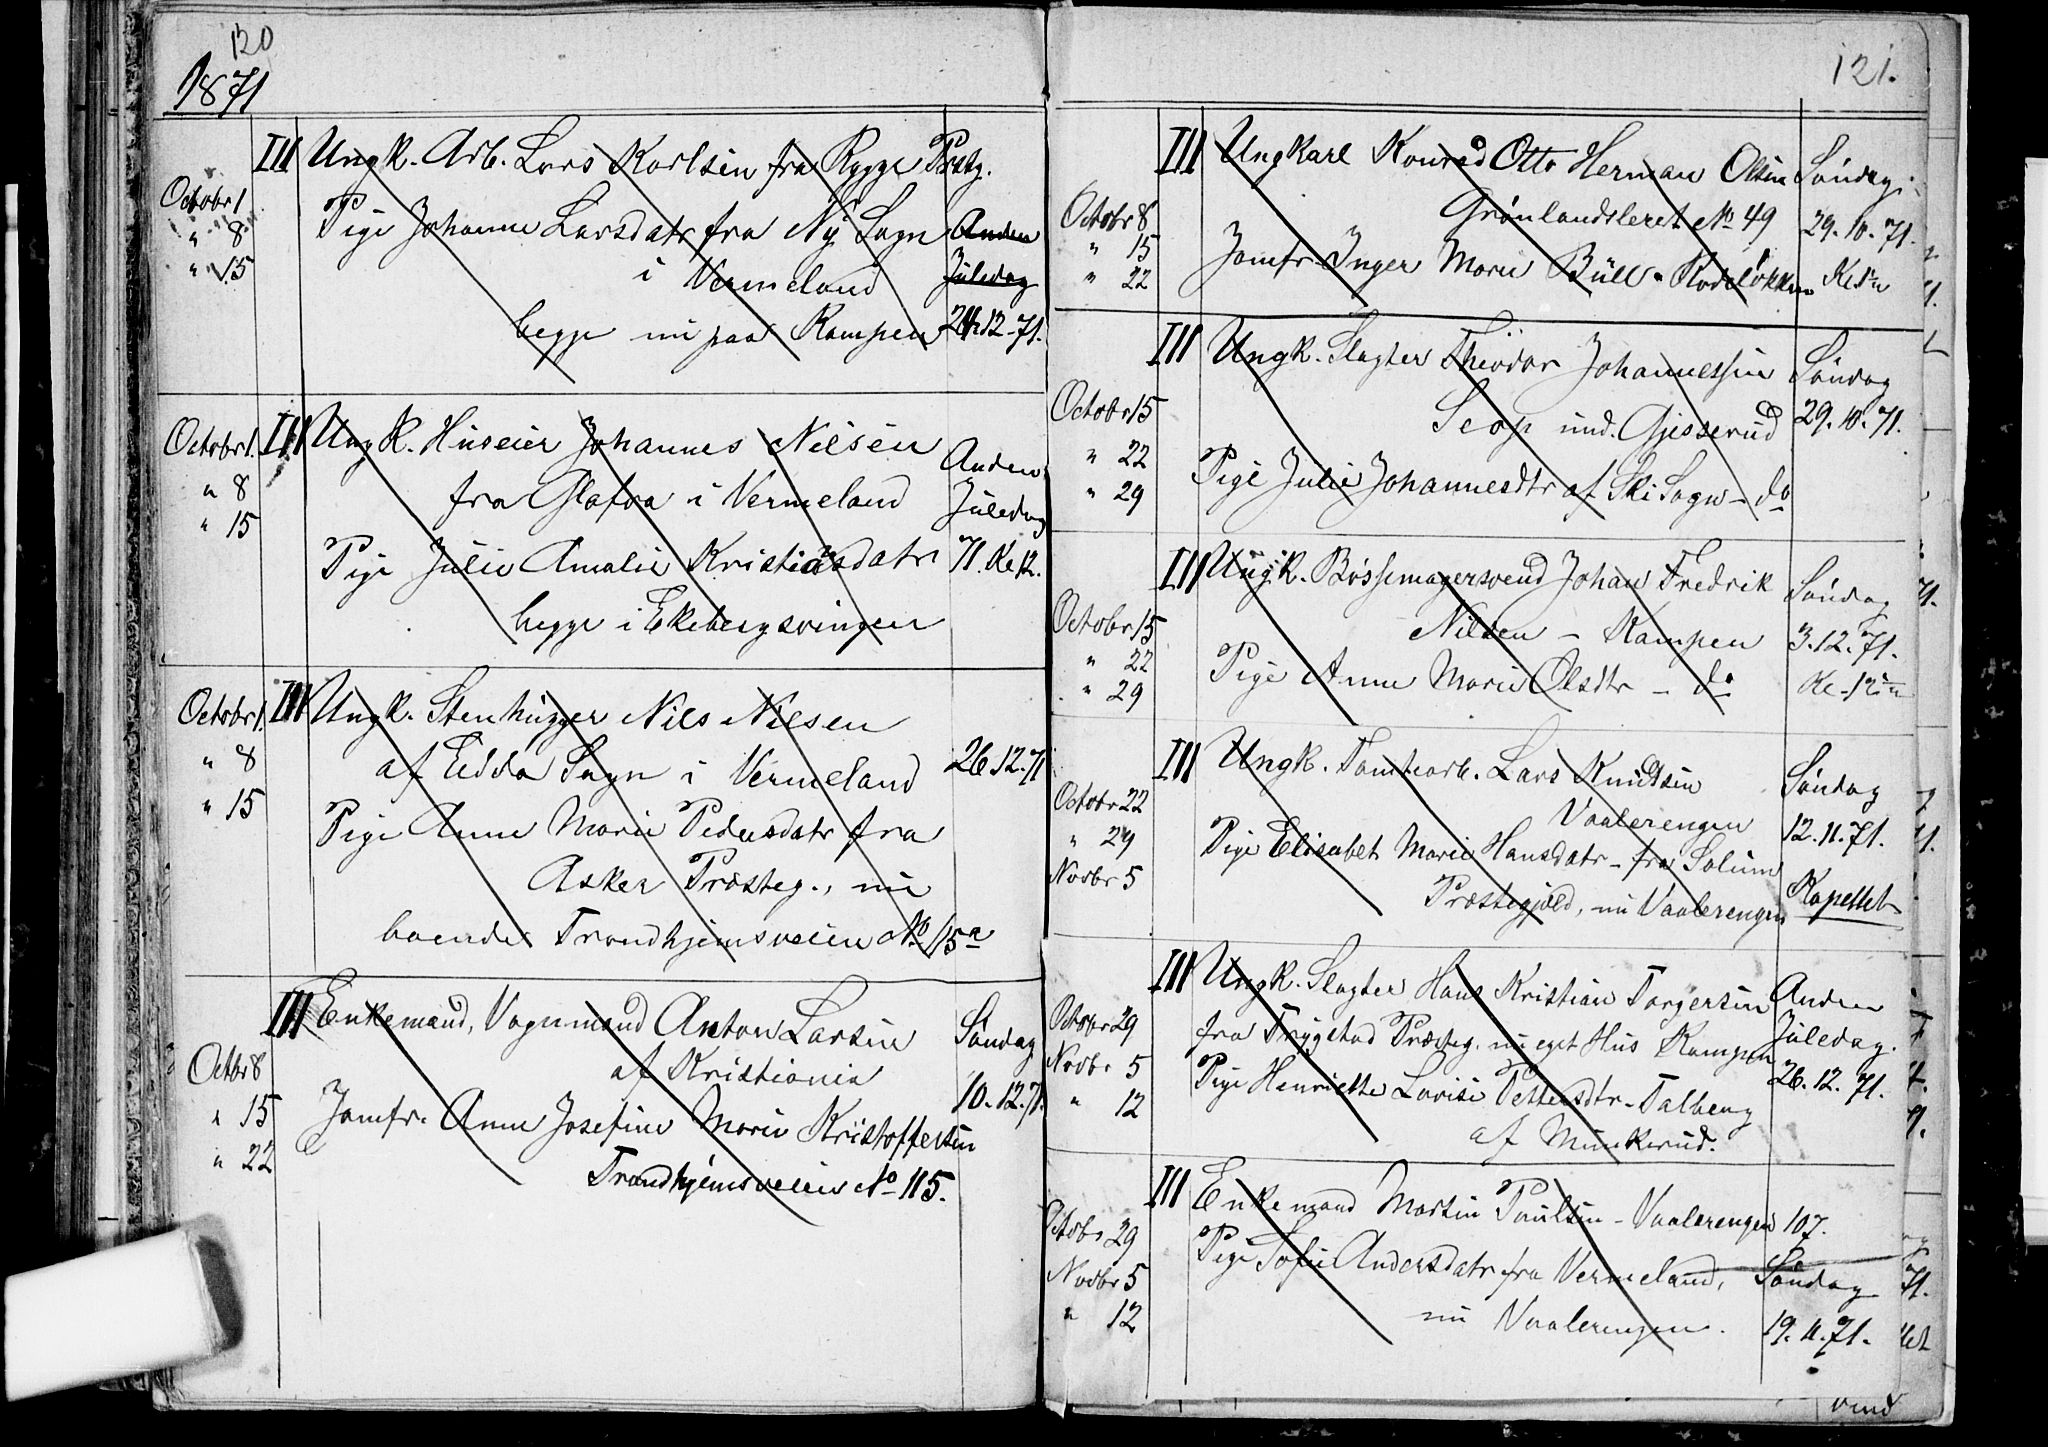 120
1871
III Ungk. Arb. Lars Karlsen fra Rygge Prstg.
Octobr 1
" 8
" 15
Pige Johanne Larsdatr fra Ny Sogn
i Vermeland
begge nu paa Kampen
Anden
Juledag
26.12.71.
Octobr 1. III Ungk. Huseier Johannes Nilsen
" 8
" 15
fra Glafva i Vermeland
Pige Julie Amalie Kristiansdatr
begge i Ekebergsvingen
Anden
Juledag
71. Kl. 12.
Octobr 1. III Ungk. Stenhugger Nils Nilsen
" 8
" 15
af Edda Sogn i Vermeland
Pige Anne Marie Pedersdatr fra
Asker Prosteg., nu
boende Trondhjemsveien No 15a
26.12.71
III Enkemand, Vognmand Anton Larsen
af Kristiania
Octbr 8
" 15
" 22
Jomfr. Anne Josefine Marie Kristoffersen
Trondhjemsveien No 115.
Søndag
10.12.71.
121.
III Ungkarl Konrad Otto Herman Olsen
Grønlandsleret No 49
Octobr 8
" 15
" 22
Jomfr. Inger Marie Büll - Rodeløkken
Søndag
29.10.71.
III Ungk. Slagter Theodor Johannessen
Seop und. Gjesserud
Octobr 15
" 22
" 29
Pige Julie Johannesdtr af Ski Sogn - do
Søndag
29.10.71.
III Ungk. Bøssemagersvend Johan Fredrik
Nilsen - Kampen
Octobr 15
" 22
" 29
Pige Anne Marie Olsdtr - do
Søndag
3.12.71.
III Ungk. Tomtearb. Lars Knudsen
Vaalerengen
Octobr 22
" 29
Novbr 5
Pige Elisabet Marie Hansdatr - fra Solum
Præstegjæld, nu Vaalerengen
Søndag
12.11.71.
Kapellet
III Ungk. Slagter Hans Kristian Torgersen
fra Trygstad Præsteg. nu eget Hus Kampen
Octobr 29
Novbr 5
" 12
Pige Henriette Lovise Pettersdtr - Talberg
af Munkerud.
Anden
Juledag.
26.12.71.
III Enkemand Martin Paulsen - Vaalerengen 107.
Octobr 29
Novbr 5
" 12
Pige Sofie Andersdatr fra Vermeland,
nu Vaalerengen.
Søndag
19.11.71.